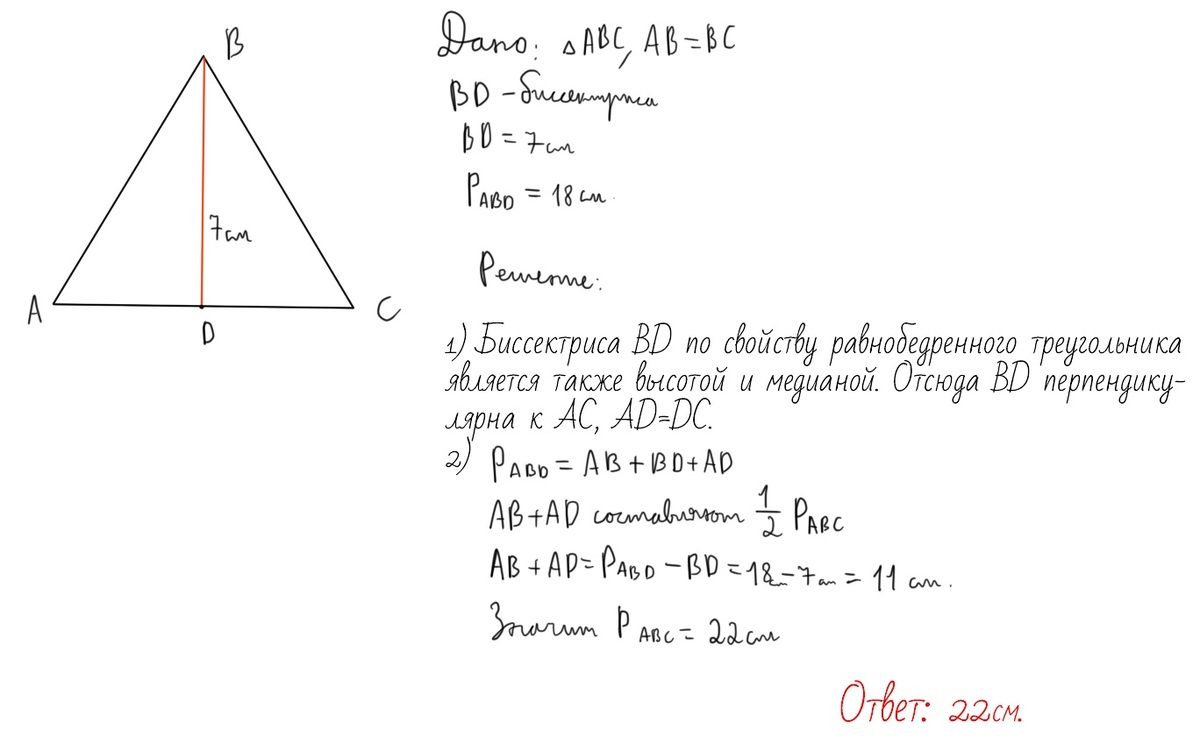 B
A
D
C
7см
Дано: △ABC, AB=BC
BD - биссектриса
BD = 7см
P_ABD = 18 см.
Решение:
1) Биссектриса BD по свойству равнобедренного треугольника
является также высотой и медианой. Отсюда BD перпендику-
лярна к AC, AD=DC.
2) P_ABD = AB + BD + AD
AB+AD составляют 1/2 P_ABC
AB + AD = P_ABD - BD = 18см - 7см = 11 см.
Значит P_ABC = 22см
Ответ: 22см.